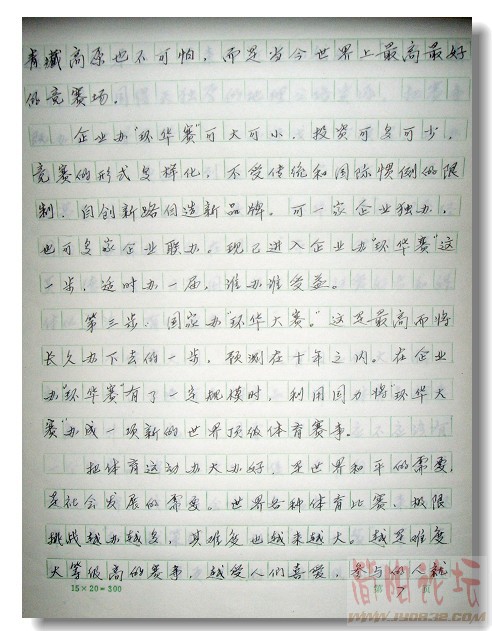 青藏高原也不可怕，而是当今世界上最高最好
的竞赛场。
企业办“环华赛”可大可小、投资可多可少，
竞赛的形式多样化，不受传统和国际惯例的限
制，自创新路创造新品牌。可一家企业独办，
也可多家企业联办。现已进入企业办“环华赛”这
一步，适时办一届，谁办谁受益。
第三步，国家办“环华大赛。”这是最高而将
长久办下去的一步，预测在十年之内。在企业
办“环华赛”有了一定规模时，利用国力将“环华大
赛”办成一项新的世界顶级体育赛事。
把体育运动办大办好，是世界和平的需要，
是社会发展的需要。世界各种体育比赛、极限
挑战越办越多，其难度也越来越大。越是难度
大等级高的赛事，越受人们喜爱，参与的人就
15×20=300
第 7 页
简阳论坛